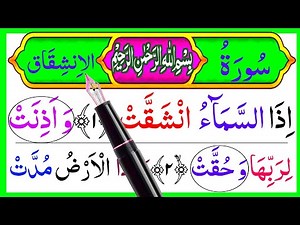 سُورَةُ بِسْمِ اللهِ الرَّحْمٰنِ الرَّحِيْمِ الْاِنْشِقَاق
اِذَا السَّمَآءُ انْشَقَّتْ ﴿۱﴾ وَاَذِنَتْ
لِرَبِّهَا وَحُقَّتْ ﴿۲﴾ الْاَرْضُ مُدَّتْ